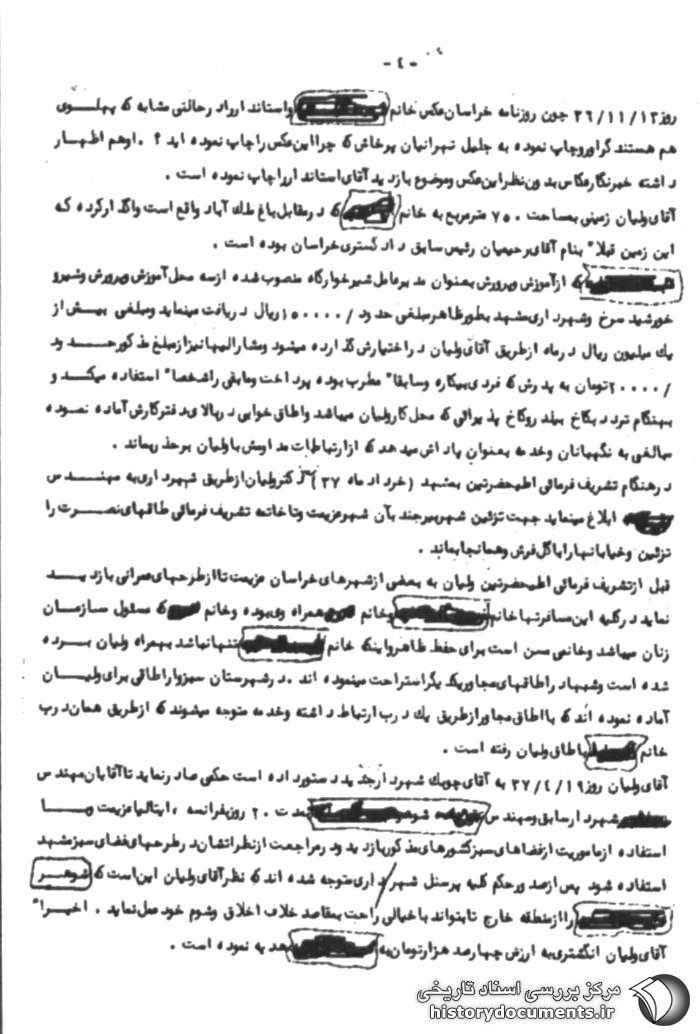 - ٤ -
روز ٣٦/١١/١٣ چون روزنامه خراسان عکس خانم واستاندارراد رحالتی مشابه که پهلوی
هم هستند گراور و چاپ نموده به جلیل تهرانیان پرخاش که چرا این عکس را چاپ نموده اید ؟ . اوهم اظهار
داشته خبرنگار عکاس بدون نظر این عکس وموضوع بازدید آقای استاندار را چاپ نموده است .
آقای ولیان زمینی بمساحت ٧٥٠ مترمربع به خانم که در مقابل باغ ملک آباد واقع است واگذار کرده که
این زمین قبلا" بنام آقای رحیمیان رئیس سابق دادگستری خراسان بوده است .
که از آموزش وپرورش بعنوان مدیر عامل شیرخوارگاه منصوب شده از سه محل آموزش وپرورش وشیرو
خورشید سرخ وشهرداری مشهد بطور ظاهر مبلغی حدود /١٥٠٠٠٠ ریال دریافت مینماید ومبلغی بیش از
یک میلیون ریال در ماه از طریق آقای ولیان در اختیارش گذارده میشود ومشارالیها نیز از مبلغ مذکور حدود
/٢٠٠٠٠ تومان به پدرش که فردی بیکاره وسابقا" مطرب بوده پرداخت ومابقی را شخصا" استفاده میکند و
بهنگام تردد بکاخ بیلدر وکاخ پذیرائی که محل کار ولیان میباشد واطاق خوابی در بالای دفتر کارش آماده نموده
مبالغی به نگهبانان وخدمه بعنوان پاداش میدهد که از ارتباطات مداومش با ولیان برحذر بماند .
در هنگام تشریف فرمائی اعلیحضرتین بمشهد ( خرداد ماه ٣٧ ) دکتر ولیان از طریق شهرداری به مهندس
ابلاغ مینماید جهت تزئین شهر بیرجند بآن شهر عزیمت وتا خاتمه تشریف فرمائی طاقهای نصرت را
تزئین وخیابانها را با گل فرش وهمانجا بماند .
قبل از تشریف فرمائی اعلیحضرتین ولیان به بعضی از شهرهای خراسان عزیمت تا از طرحهای عمرانی بازدید
نماید در کلیه این مسافرتها خانم وخانم همراه وی بوده وخانم که مسئول سازمان
زنان میباشد وخانمی مسن است برای حفظ ظاهر واینکه خانم تنها نباشد بهمراه ولیان برده
شده است وشبها در اطاقهای مجاور یکدیگر استراحت مینموده اند . در شهرستان سبزوار اطاقی برای ولیان
آماده نموده اند که با اطاق مجاور از طریق یک درب ارتباط داشته وخدمه متوجه میشوند که از طریق همان درب
خانم باطاق ولیان رفته است .
آقای ولیان روز ٣٧/٤/١٩ به آقای چوبک شهردار جدید دستور داده است حکمی صادر نماید تا آقایان مهندس
شهردار سابق ومهندس شوهر بمدت ٢٠ روز بفرانسه ، ایتالیا عزیمت وبا
استفاده از ماموریت از فضاهای سبز کشورهای مذکور بازدید ودر مراجعت از نظراتشان در طرحهای فضای سبز مشهد
استفاده شود پس از صدور حکم کلیه پرسنل شهرداری متوجه شده اند که نظر آقای ولیان این است که شوهر
را از منطقه خارج تا بتواند با خیالی راحت بمقاصد خلاف اخلاق وشوم خود عمل نماید . اخیرا"
آقای ولیان انگشتری به ارزش چهارصد هزار تومان به هدیه نموده است .
مرکز بررسی اسناد تاریخی
historydocuments.ir